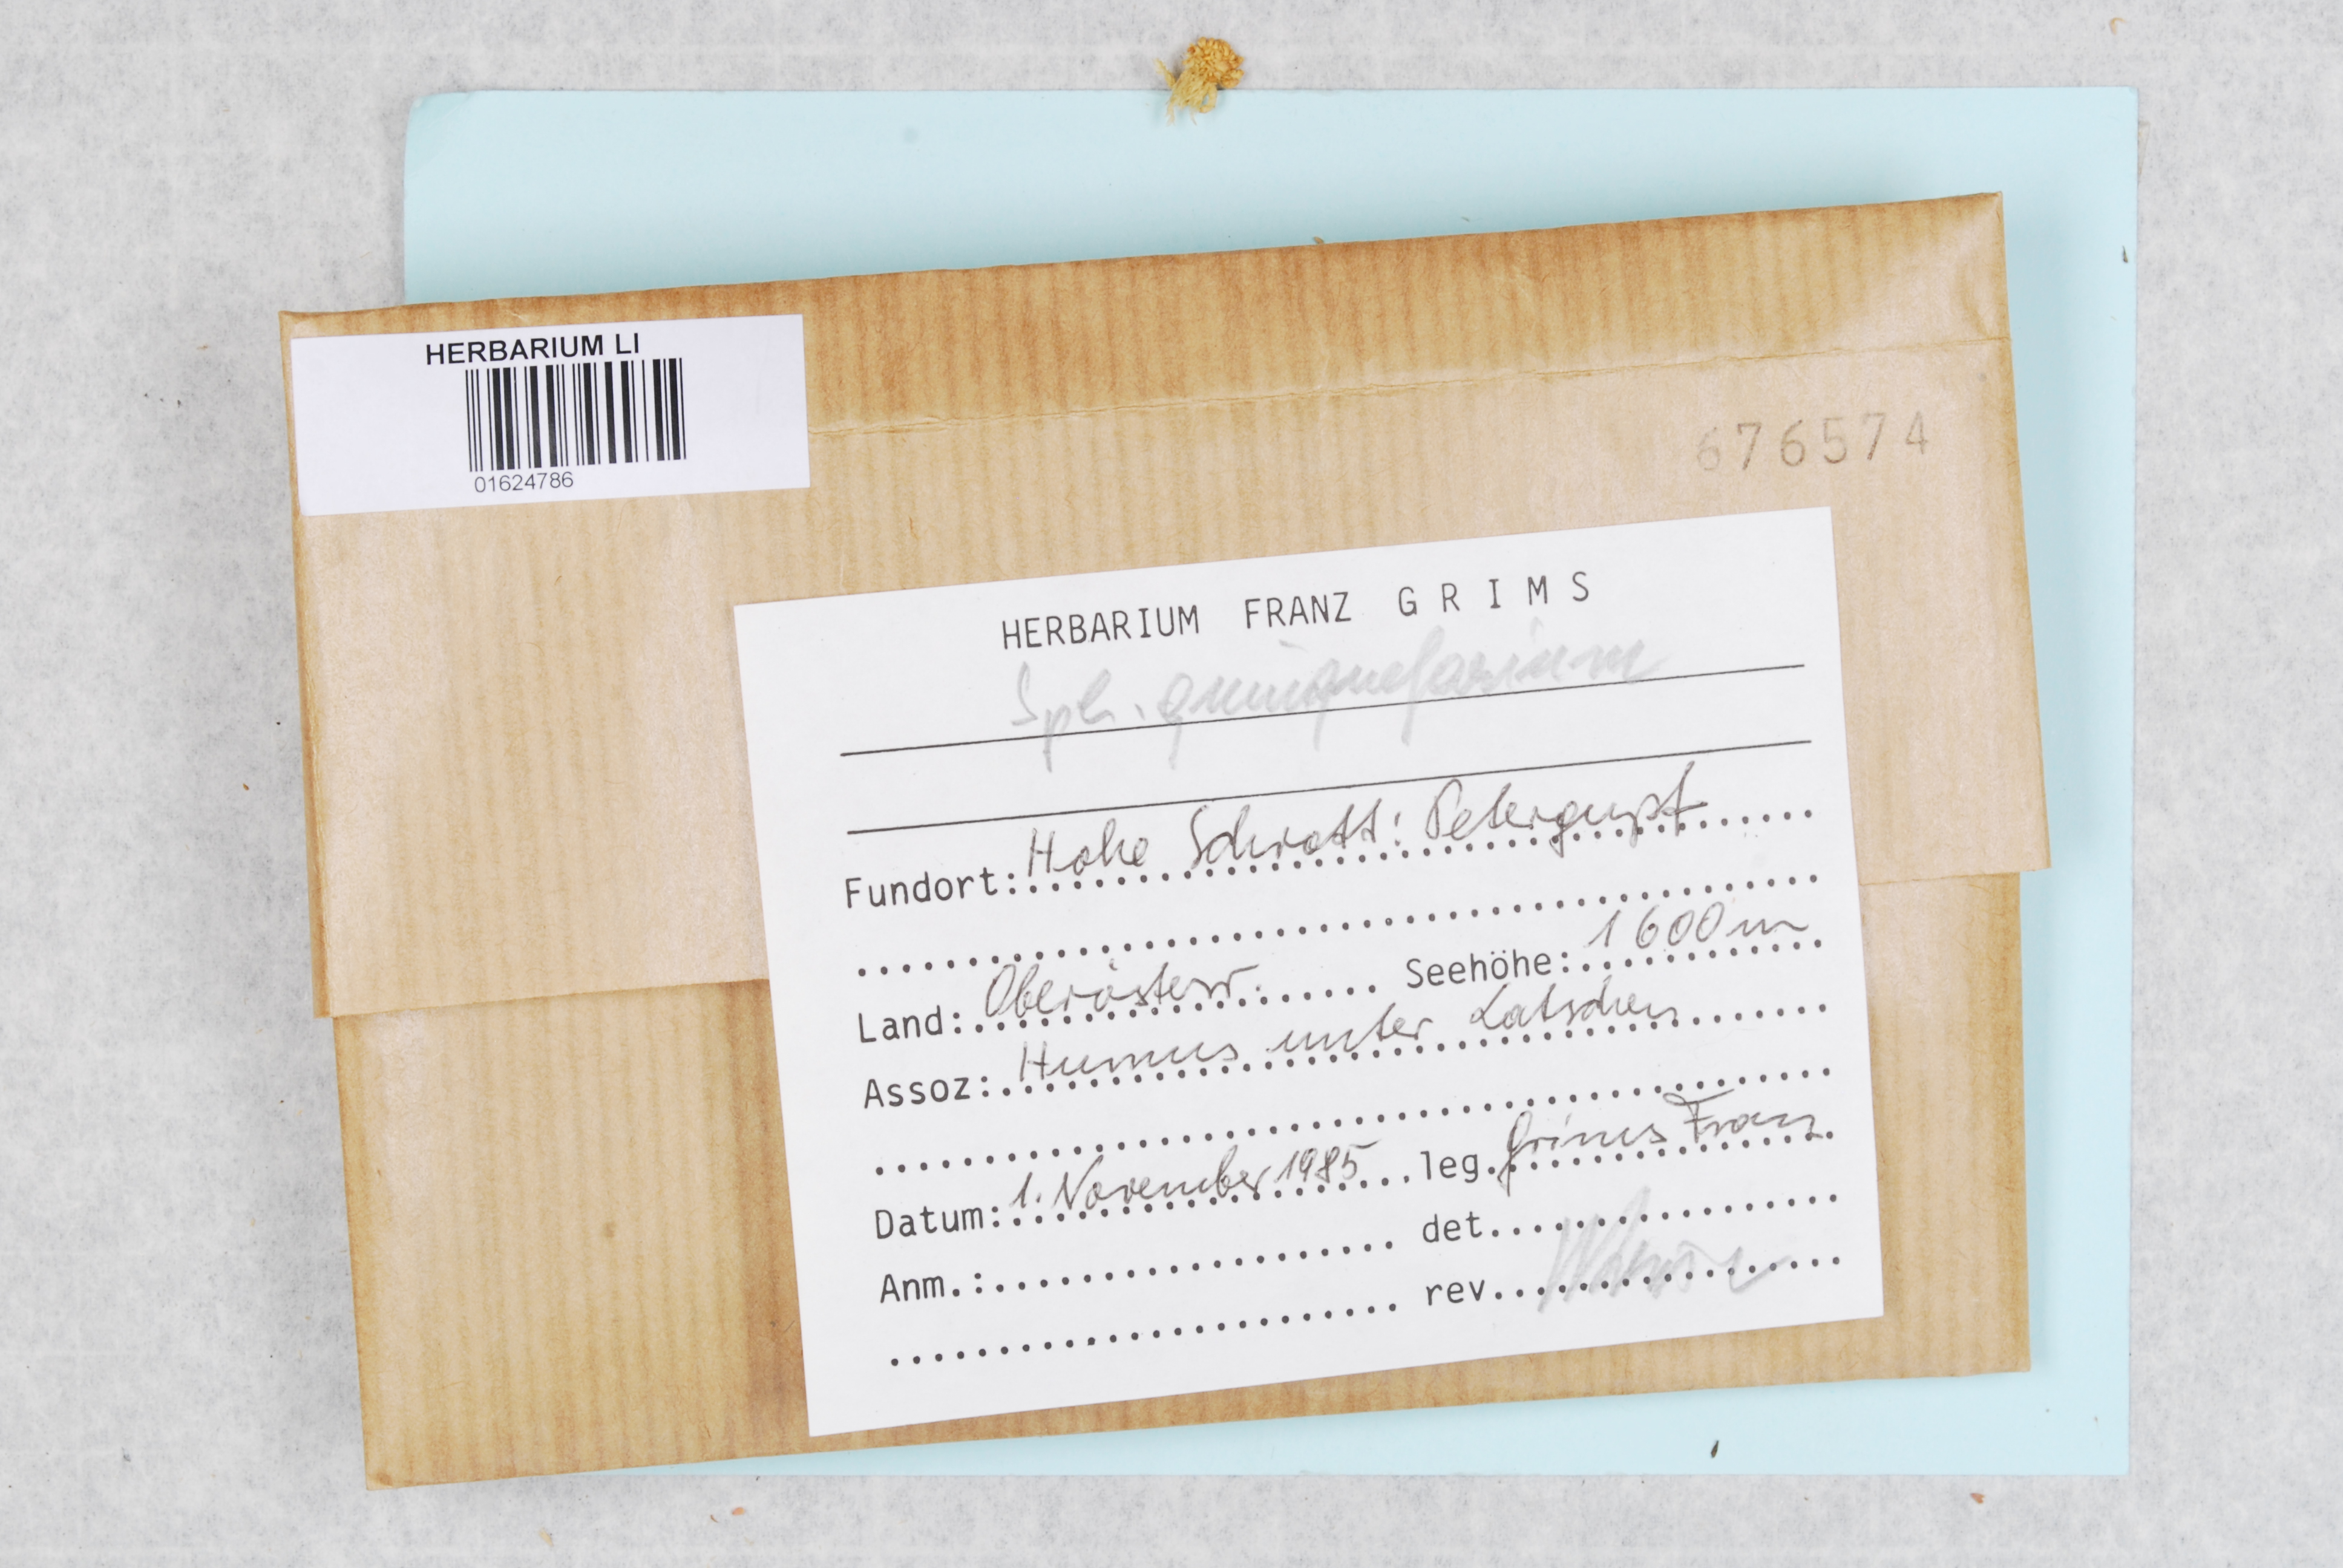 HERBARIUM LI
01624786
676574
HERBARIUM FRANZ GRIMS
Sph. quinquefarium
Fundort: Hohe Schrott: Petergupf
Land: Oberösterr. Seehöhe: 1600 m
Assoz: Humus unter Latschen
Datum: 1. November 1985 leg. Grims Franz
Anm.: det.
rev.